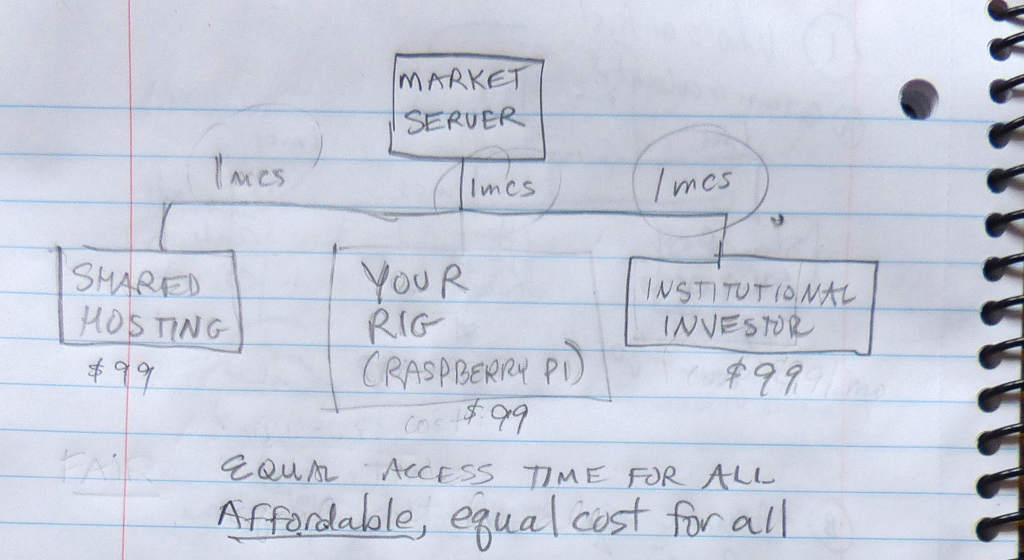 MARKET
SERVER
1mcs
1mcs
1mcs
SHARED
HOSTING
$99
YOUR
RIG
(RASPBERRY PI)
$99
INSTITUTIONAL
INVESTOR
$99
FAIR
EQUAL ACCESS TIME FOR ALL
Affordable, equal cost for all